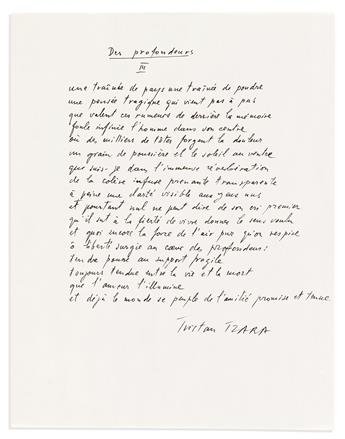 Des profondeurs
III
une traînée de pays une traînée de poudre
une pensée tragique qui vient pas à pas
que valent ces rumeurs de derrière la mémoire
foule infinie l'homme dans son centre
où des milliers de têtes forgent la douleur
un grain de poussière et le soleil au ventre
que suis-je dans l'immense réverbération
de la colère infuse prenante transparente
à peine une clarté visible aux yeux nus
et pourtant nul ne peut dire de son cri premier
qu'il ait à la fierté de vivre donner le sens voulu
et quoi encore la force de l'air pur qu'on respire
ô liberté surgie au cœur des profondeurs:
tendre pensée au support fragile
toujours tendue entre la vie et la mort
que l'amour t'illumine
et déjà le monde se peuple de l'amitié promise et tenue
Tristan TZARA